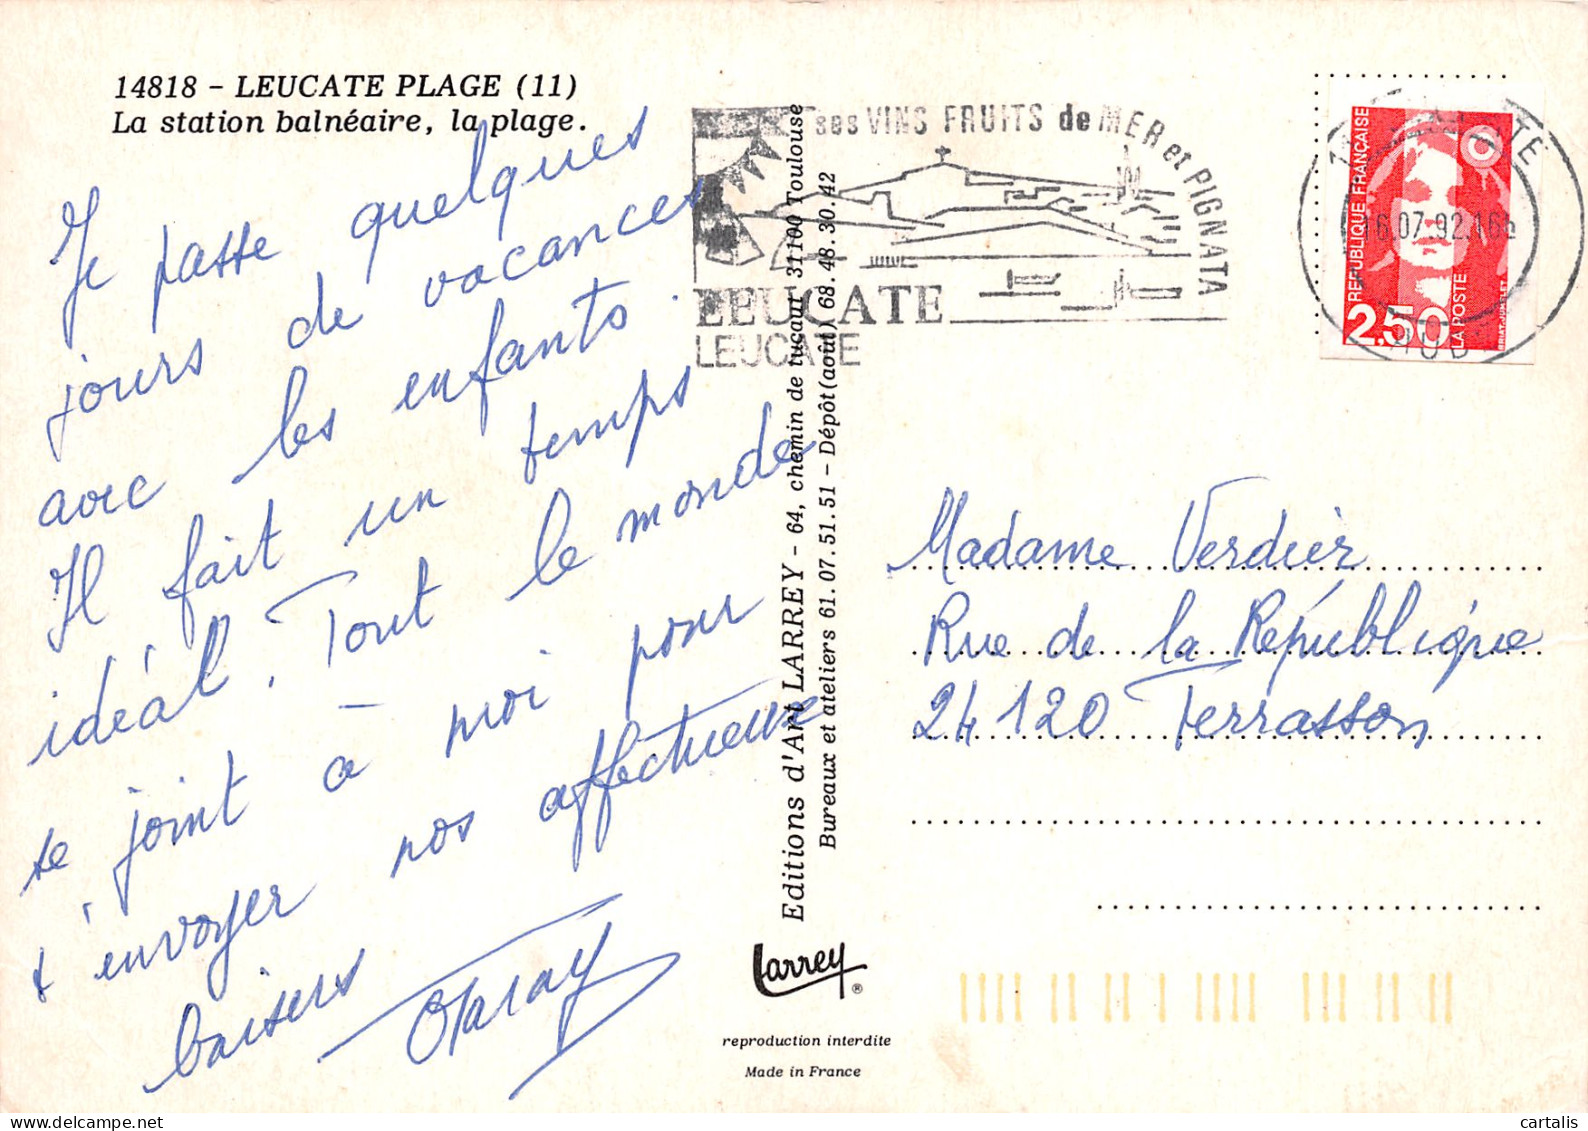 14818 - LEUCATE PLAGE (11)
La station balnéaire, la plage.
Je passe quelques
jours de vacances
avec les enfants.
Il fait un temps
idéal. Tout le monde
se joint à moi pour
t'envoyer nos affectueux
baisers
Editions d'Art LARREY - 64, chemin de tucaut 31100 Toulouse
Bureaux et ateliers 61.07.51.51 - Dépôt (août) 68.48.30.42
ses VINS FRUITS de MER et PIGNATA
LEUCATE
LEUCATE
16.07.92.16h
REPUBLIQUE FRANÇAISE
2,50
LA POSTE
Madame Verdier
Rue de la République
24120 Terrasson
Larrey ®
reproduction interdite
Made in France
cartalis